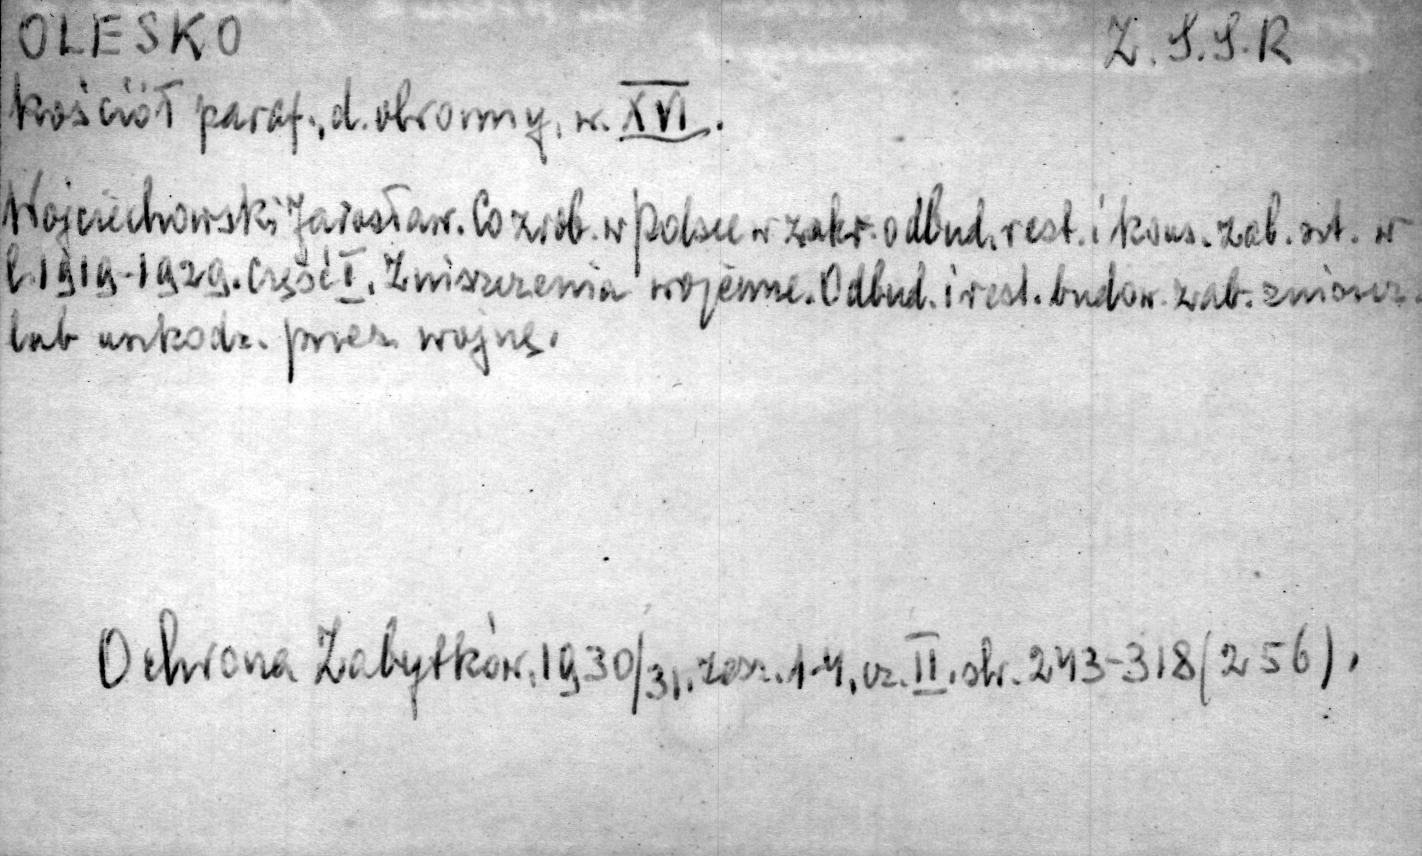 OLESKO Z.S.S.R
kościół paraf., d. obronny, w. XVI.
Wojciechowski Jarosław. Co zrob. w Polsce w zakr. odbud. rest. i kons. zab. szt. w
l. 1919-1929. Część I. Zniszczenia wojenne. Odbud. i rest. budow. zab. zniszcz.
lub uszkodz. przez wojnę.
Ochrona Zabytków. 1930/31. zesz. 1-4, cz. II. str. 243-318 (256).